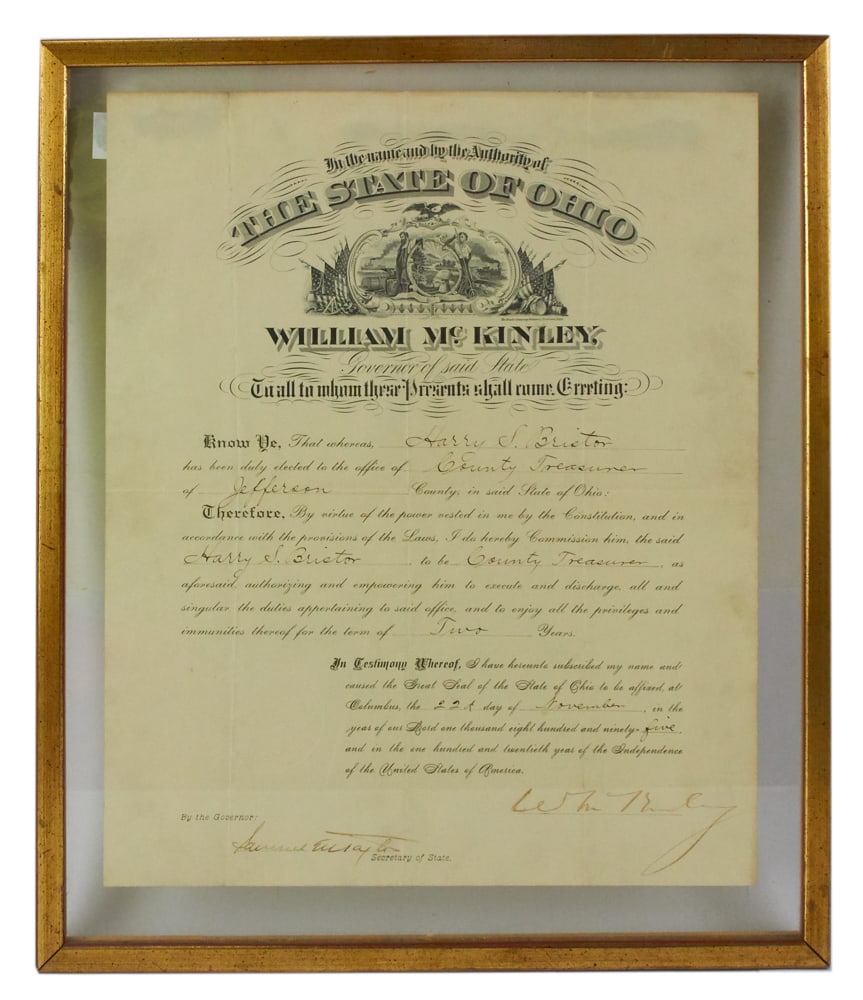 In the name and by the Authority of
THE STATE OF OHIO
WILLIAM McKINLEY,
Governor of said State
To all to whom these Presents shall come, Greeting:
Know Ye, That whereas, Harry S. Bristor
has been duly elected to the office of County Treasurer
of Jefferson County, in said State of Ohio:
Therefore, By virtue of the power vested in me by the Constitution, and in
accordance with the provisions of the Laws, I do hereby Commission him, the said
Harry S. Bristor, to be County Treasurer, as
aforesaid, authorizing and empowering him to execute and discharge, all and
singular the duties appertaining to said office, and to enjoy all the privileges and
immunities thereof for the term of Two Years.
In Testimony Whereof, I have hereunto subscribed my name and
caused the Great Seal of the State of Ohio to be affixed, at
Columbus, the 22d day of November, in the
year of our Lord one thousand eight hundred and ninety-five,
and in the one hundred and twentieth year of the Independence
of the United States of America.
Wm McKinley
By the Governor:
Samuel M Taylor
Secretary of State.